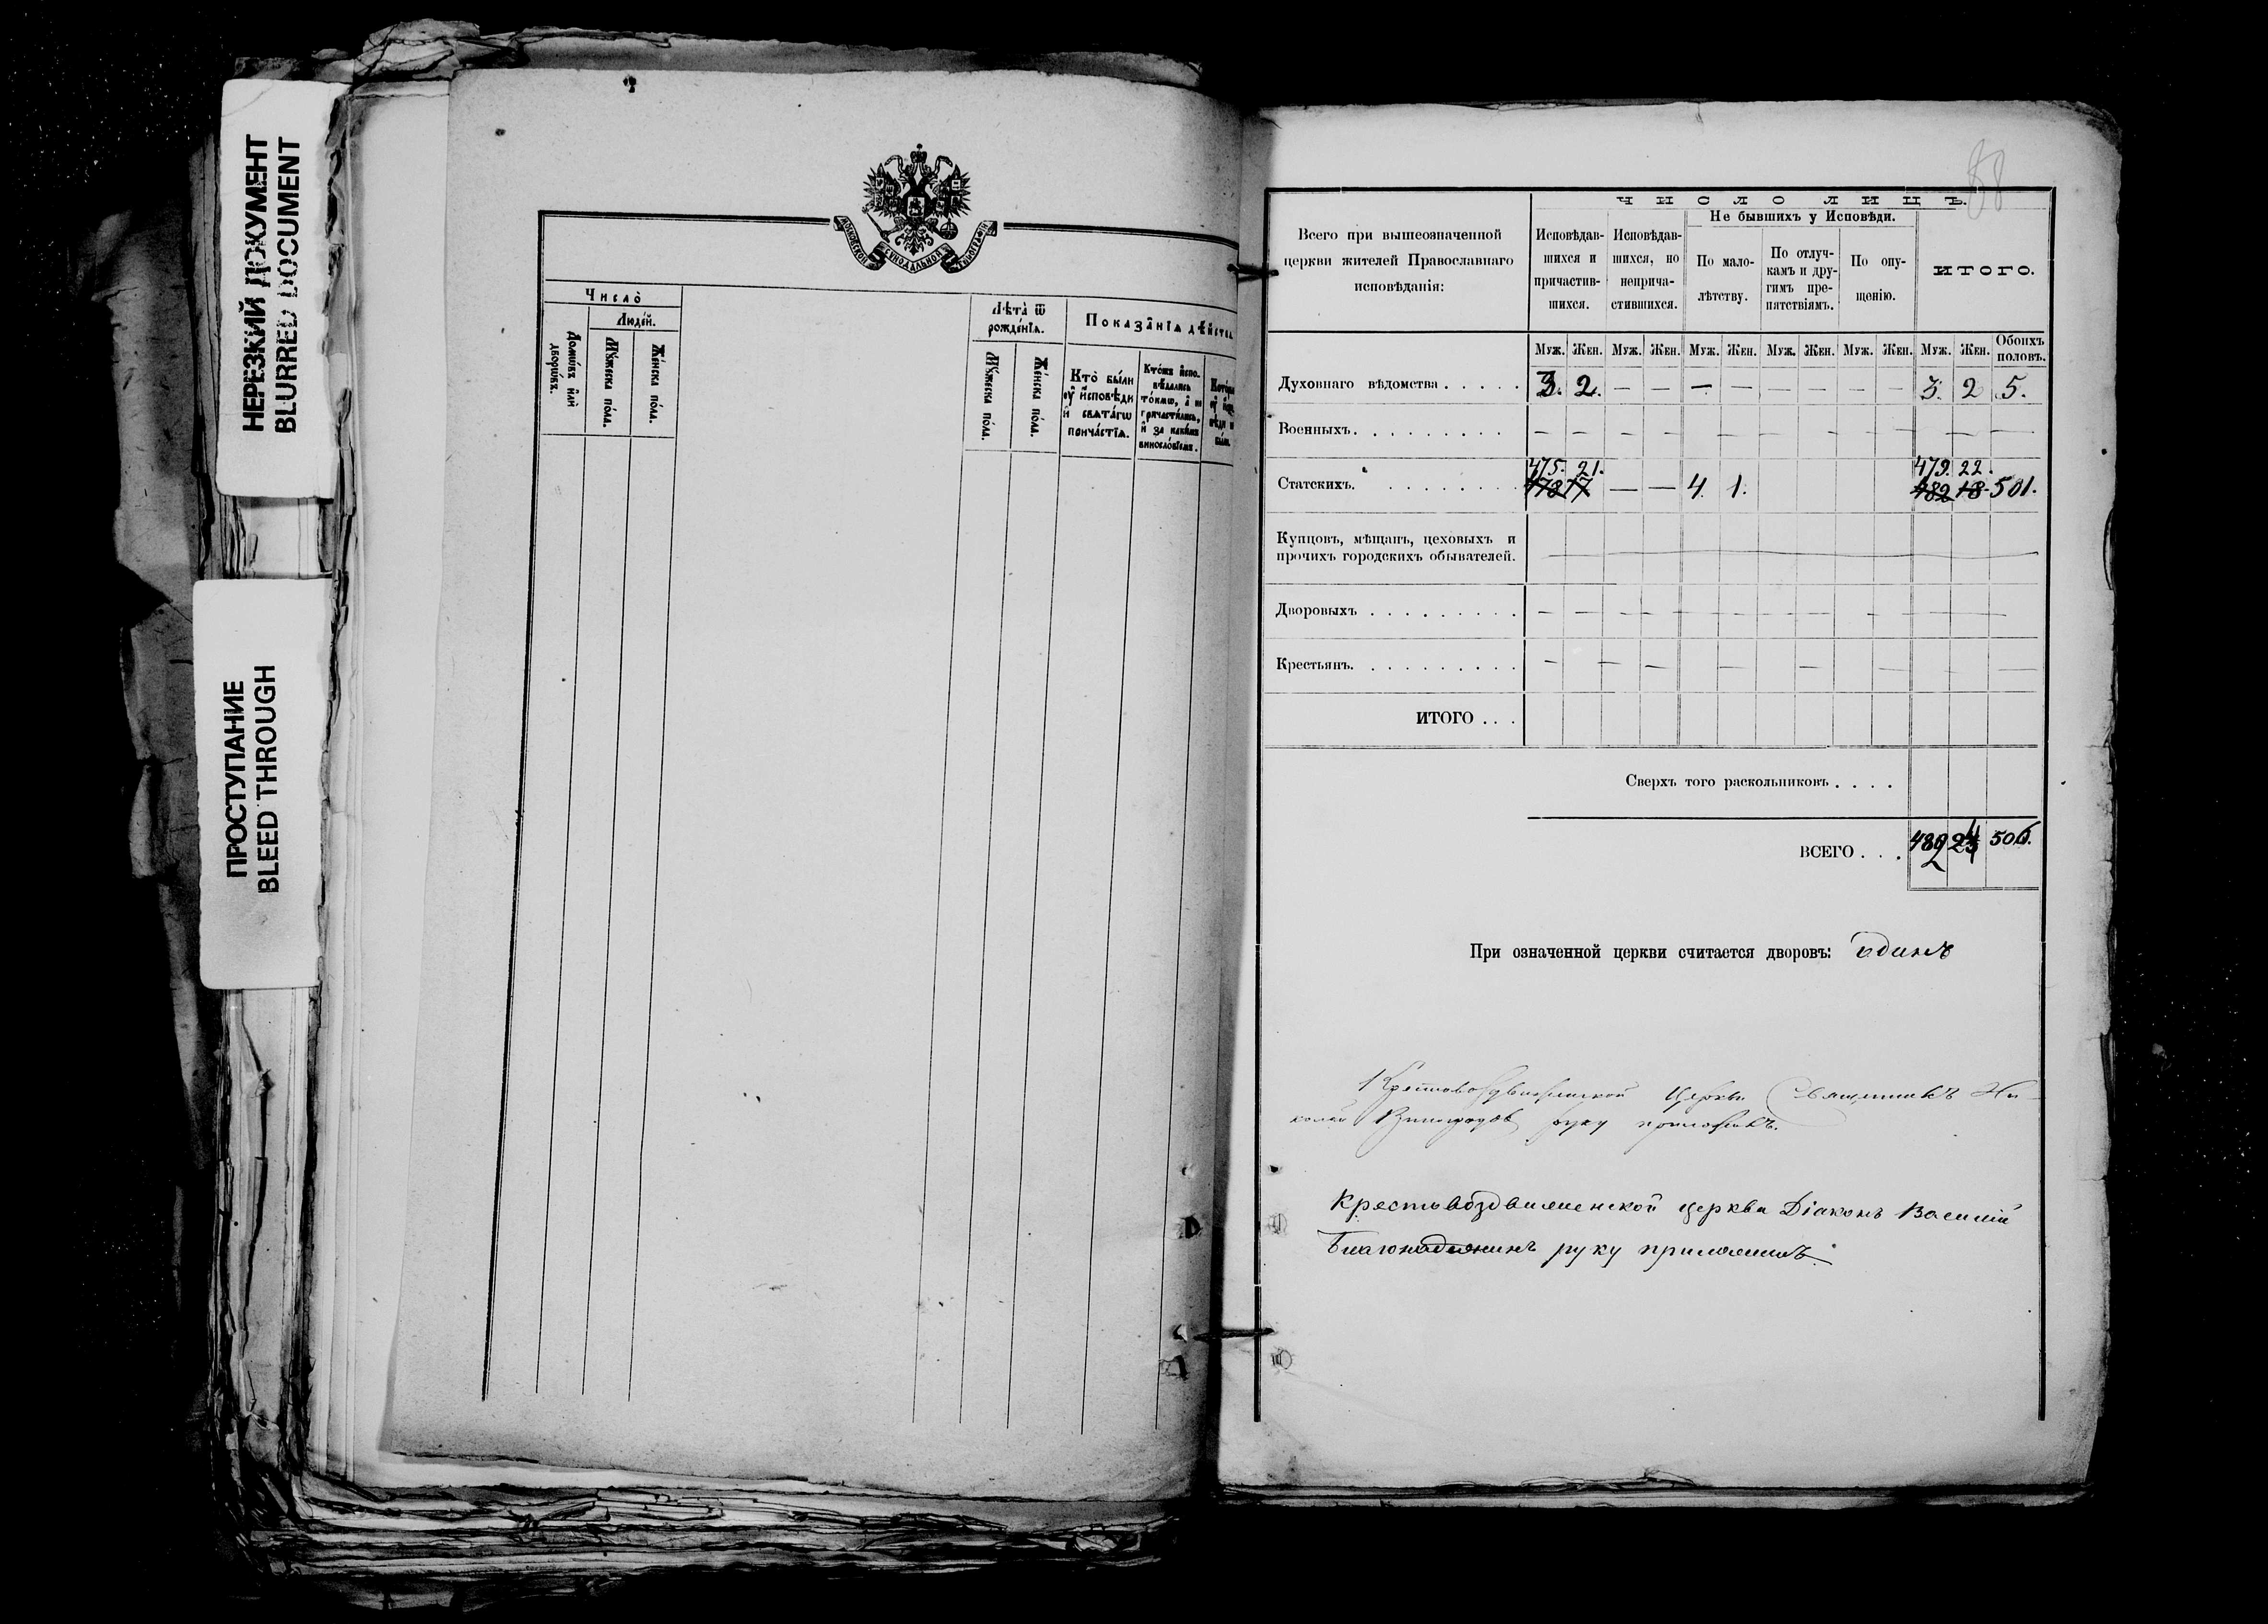 НЕРЕЗКИЙ ДОКУМЕНТ
BLURRED DOCUMENT
ПРОСТУПАНИЕ
BLEED THROUGH
МОСКОВСКОЙ СѴНОДАЛЬНОЙ ТИПОГРАФІИ
Число̀
Люде́й.
Домѡ́въ и҆лѝ дворѡ́въ.
Мꙋ́жеска по́ла.
Же́нска по́ла.
Лѣта̀ ѿ рожде́нїѧ.
Мꙋ́жеска по́ла.
Же́нска по́ла.
Показа̑нїѧ дѣ́йств
Кто̀ бы́ли ᲂу҆ и҆́сповѣди и҆ свѧта́гѡ прича́стїѧ.
Кто́жъ и҆спо-
вѣ́дались
то́кмѡ, а҆ не
причасти́лись,
и҆ за каки́мъ
винослѡ́вїемъ.
88
ЧИСЛО ЛИЦЪ.
Всего при вышеозначенной
церкви жителей Православнаго
исповѣданія:
Исповѣдав-
шихся и
причастив-
шихся.
Исповѣдав-
шихся, но
неприча-
стившихся.
Не бывшихъ у Исповѣди.
По мало-
лѣтству.
По отлуч-
камъ и дру-
гимъ пре-
пятствіямъ.
По опу-
щенію.
ИТОГО.
Муж. Жен. Муж. Жен. Муж. Жен. Муж. Жен. Муж. Жен. Муж. Жен. Обоихъ половъ.
Духовнаго вѣдомства . . . . . 3. 2. — — — — — — — — 3. 2 5.
Военныхъ. . . . . . . . . — — — — — — — — — — — — —
475. 21. 479. 22.
Статскихъ. . . . . . . . . 478 17 — — 4. 1. 482 18 501.
Купцовъ, мѣщанъ, цеховыхъ и
прочихъ городскихъ обывателей.
Дворовыхъ . . . . . . . . . — — — — — — — — — — — —
Крестьянъ. . . . . . . . . . — — — — — — — —
ИТОГО . . .
Сверхъ того раскольниковъ . . . .
ВСЕГО . . . 482 24 506.
При означенной церкви считается дворовъ: одинъ
Крестовоздвиженской Церкви Священникъ Ни-
колай Виноградовъ руку приложилъ.
Крестовоздвиженской церкви Діаконъ Василій
Благонадеждинъ руку приложилъ.